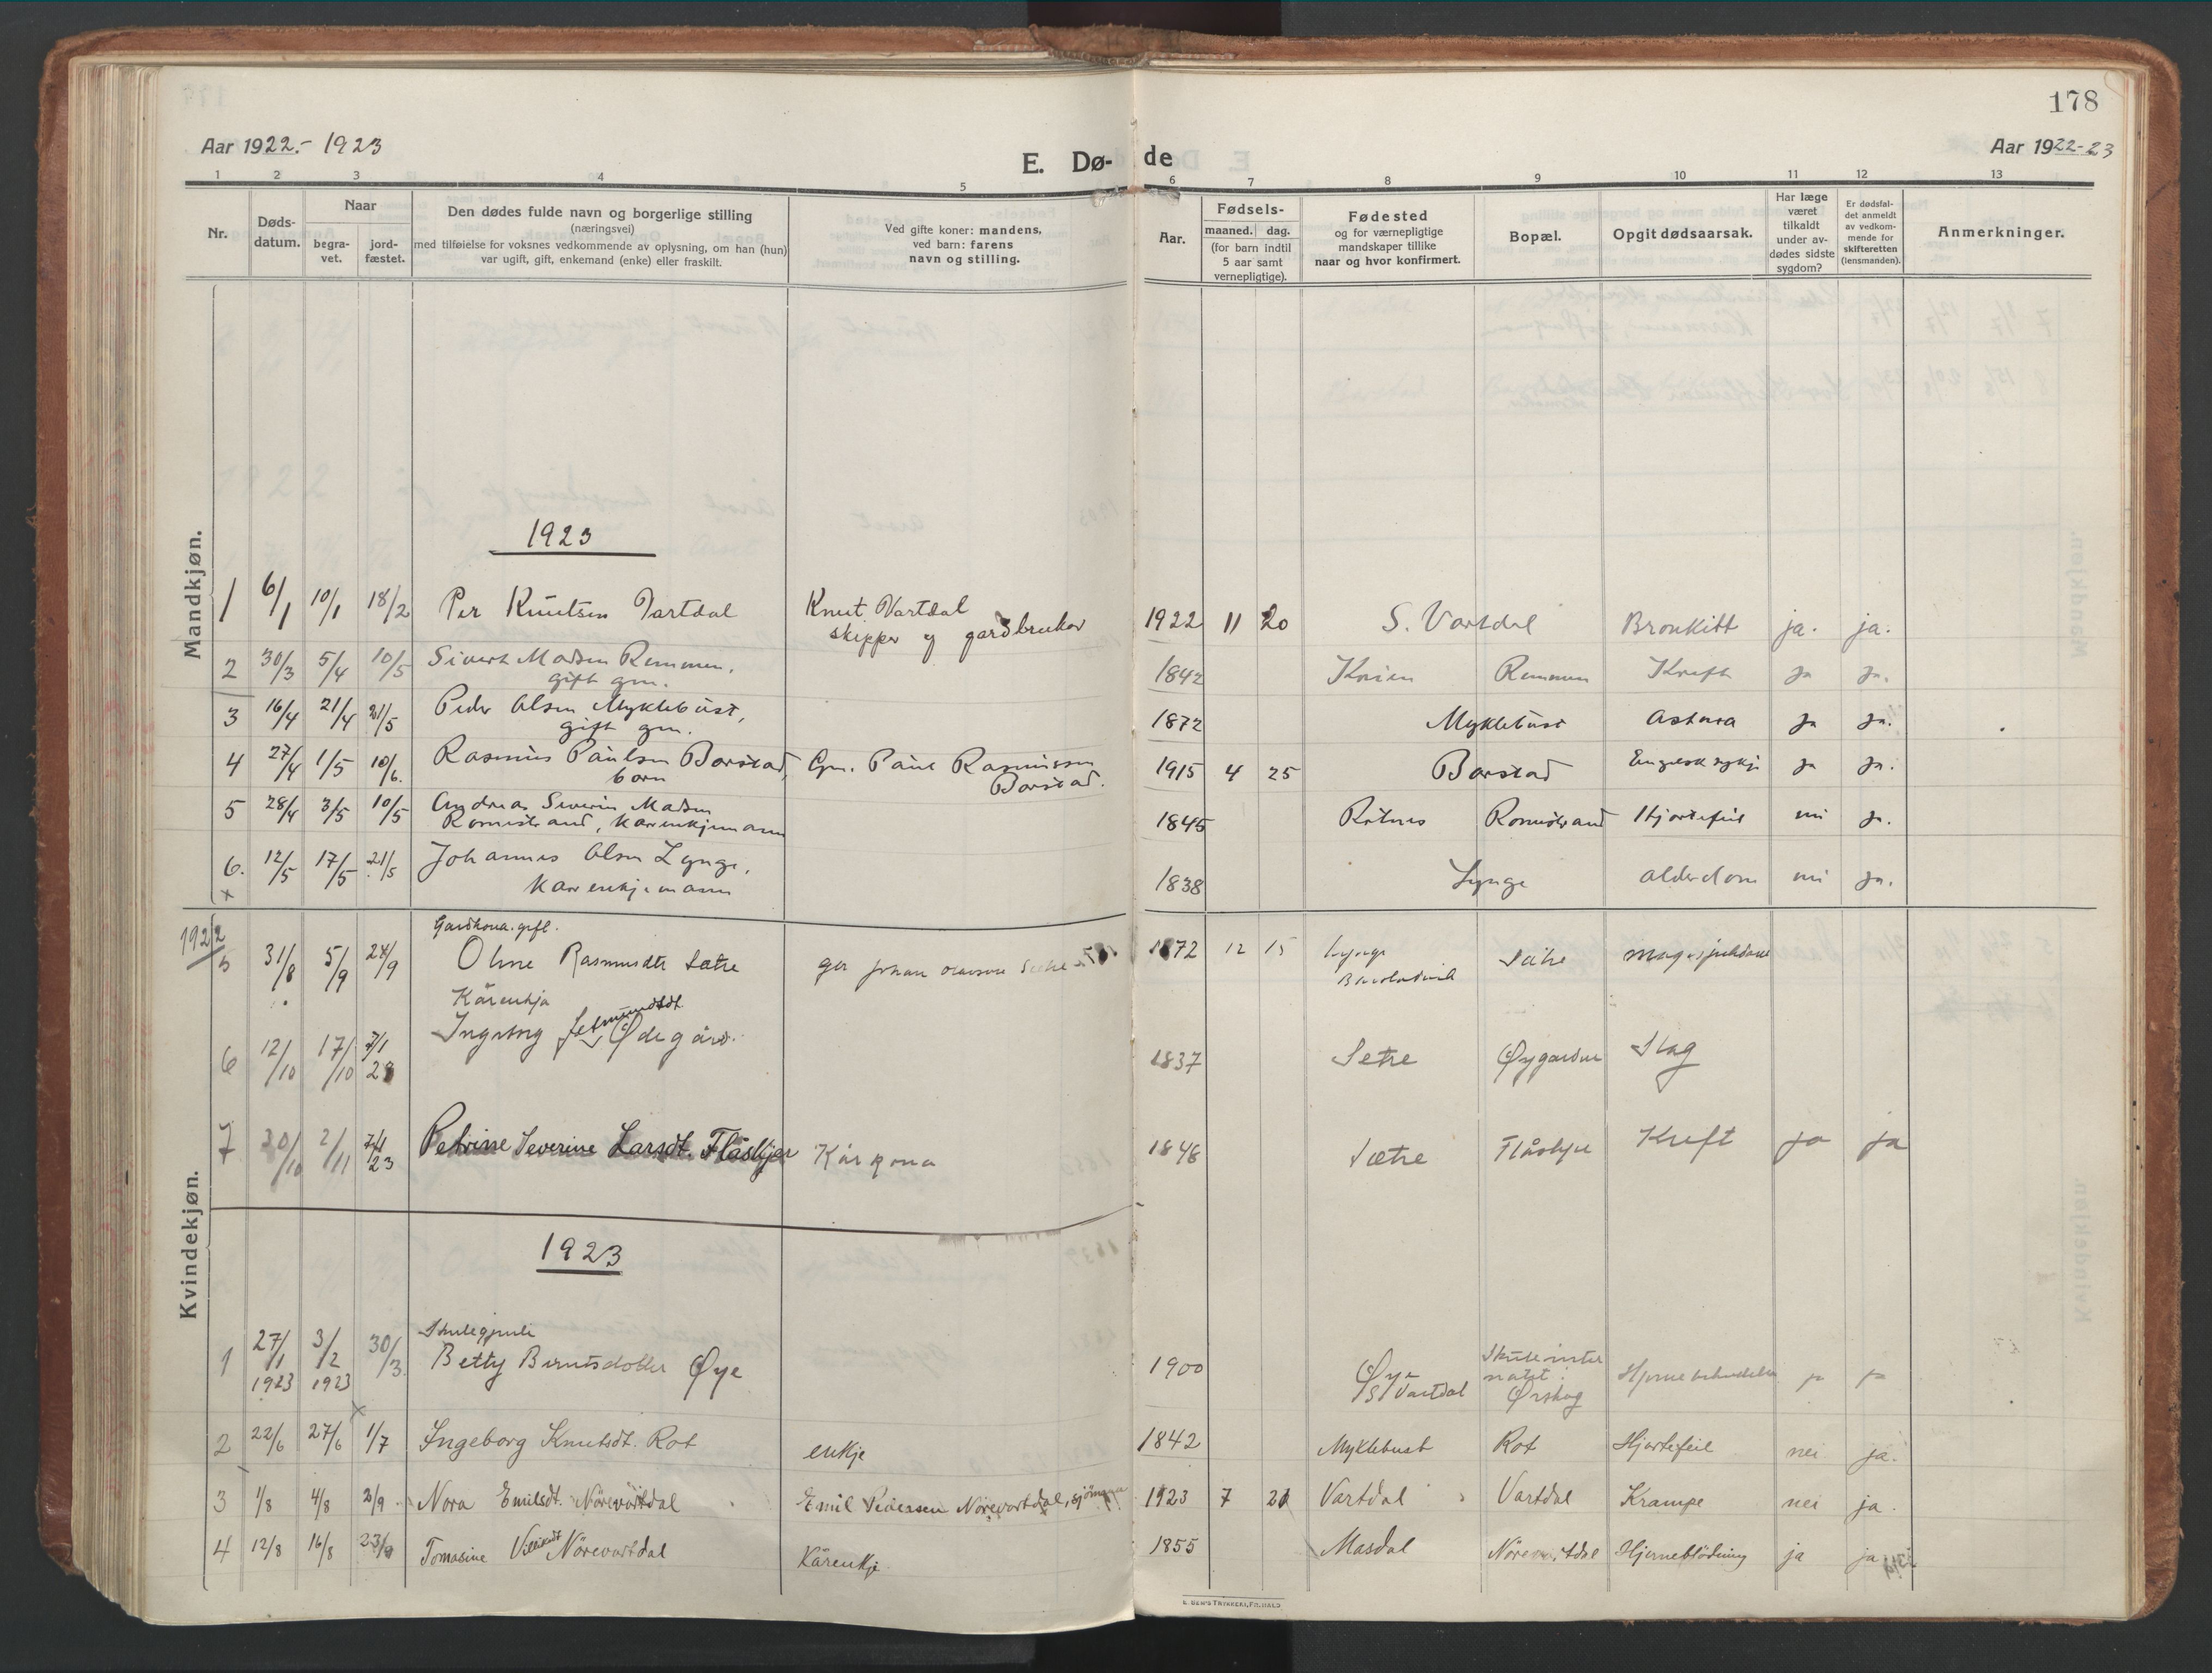 178
Aar 1922.- 1923
E. Dø-
de
Aar 1922-23
1 2 3 4 5 6 7 8 9 10 11 12 13
Nr.
Døds-
datum.
Naar
begra-
vet.
jord-
fæstet.
Den dødes fulde navn og borgerlige stilling
(næringsvei)
med tilføielse for voksnes vedkommende av oplysning, om han (hun)
var ugift, gift, enkemand (enke) eller fraskilt.
Ved gifte koner: mandens,
ved barn: farens
navn og stilling.
Aar.
Fødsels-
maaned. dag.
(for barn indtil
5 aar samt
vernepligtige).
Fødested
og for værnepligtige
mandskaper tillike
naar og hvor konfirmert.
Bopæl.
Opgit dødsaarsak.
Har læge
været
tilkaldt
under av-
dødes sidste
sygdom?
Er dødsfal-
det anmeldt
av vedkom-
mende for
skifteretten
(lensmanden).
Anmerkninger.
Mandkjøn.
1923
1 6/1 10/1 18/2 Per Knutsen Vartdal Knut Vartdal 1922 11 20 S. Vartdal Bronkitt ja. ja.
skipper og gardbruker
2 30/3 5/4 10/5 Sivert Madsen Remmen, 1842 Remmen Kreft ja ja.
gift gm.
3 16/4 21/4 21/5 Peder Olsen Myklebust, 1872 Myklebust Astma ja ja.
gift gm.
4 27/4 1/5 10/6. Rasmus Paulsen Barstad, Gm. Paul Rasmussen 1915 4 25 Barstad Engelsk sykje ja ja.
born Barstad.
5 28/4 3/5 10/5 Andreas Severin Madsen 1845 Romestrand Hjartefeil nei ja.
Romestrand, karenkjemann
6. 12/5 17/5 21/5 Johannes Olsen Lynge, 1838 Lynge alderdom nei ja.
x karenkjemann
1922 Gardkona. gift.
5 31/8 5/9 24/9 Oline Rasmusdtr Sætre gbr Johan 1872 12 15 Lynge Sætre
Kårenkja
6 12/10 17/10 Ødegård. 1837 Setre Øygarden Slag
7 30/10 2/11 Petrine Severine Larsdt. Flåskjer Kårkona 1848 Sætre Flåskjer Kreft ja ja
Kvindekjøn.
1923
Skulegjente
1 27/1 1923 3/2 1923 30/3. Betty Berntsdotter Øye 1900 Øye S/Vartdal Ørskog ja ja
2 22/6 27/6 1/7 Ingeborg Knutsdt. Rot enkje 1842 Myklebust Rot Hjartefeil nei ja.
3 1/8 4/8 2/9 Nora Emilsdt. Nörevartdal Emil Pedersen Nörevartdal, sjömann 1923 7 21 Vartdal Vartdal Krampe nei ja.
4 12/8 16/8 23/9 Tomasine Nörevartdal Kårenkje 1855 Masdal Nörevartdal Hjerneblödning ja ja